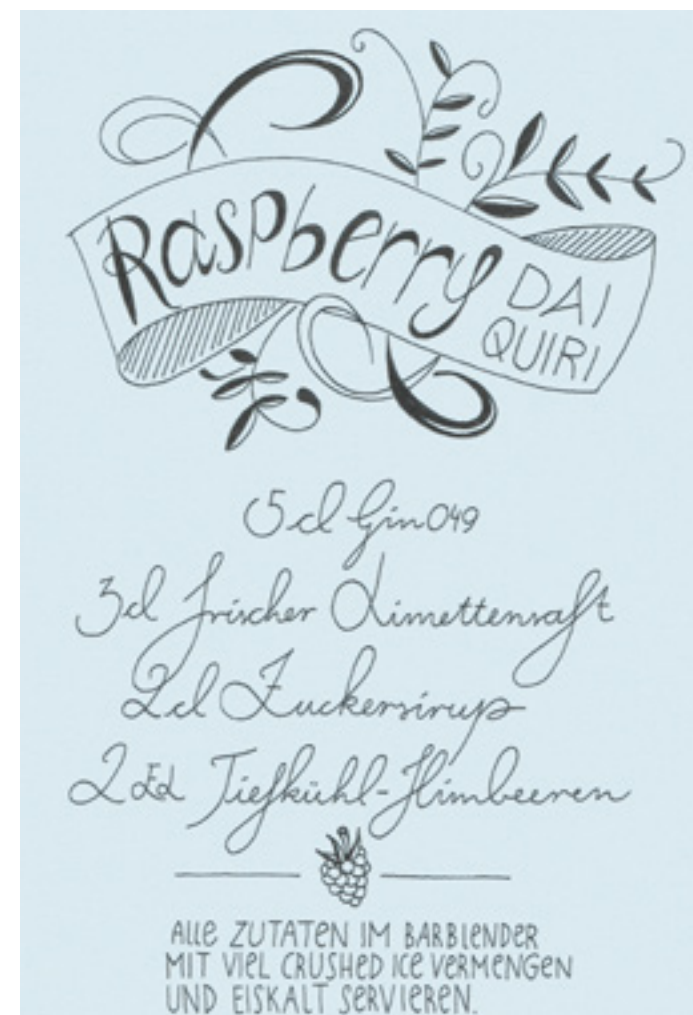 Raspberry
DAI
QUIRI
5 cl Gin 049
3 cl frischer Limettensaft
2 cl Zuckersirup
2 EL Tiefkühl-Himbeeren
ALLE ZUTATEN IM BARBLENDER
MIT VIEL CRUSHED ICE VERMENGEN
UND EISKALT SERVIEREN.